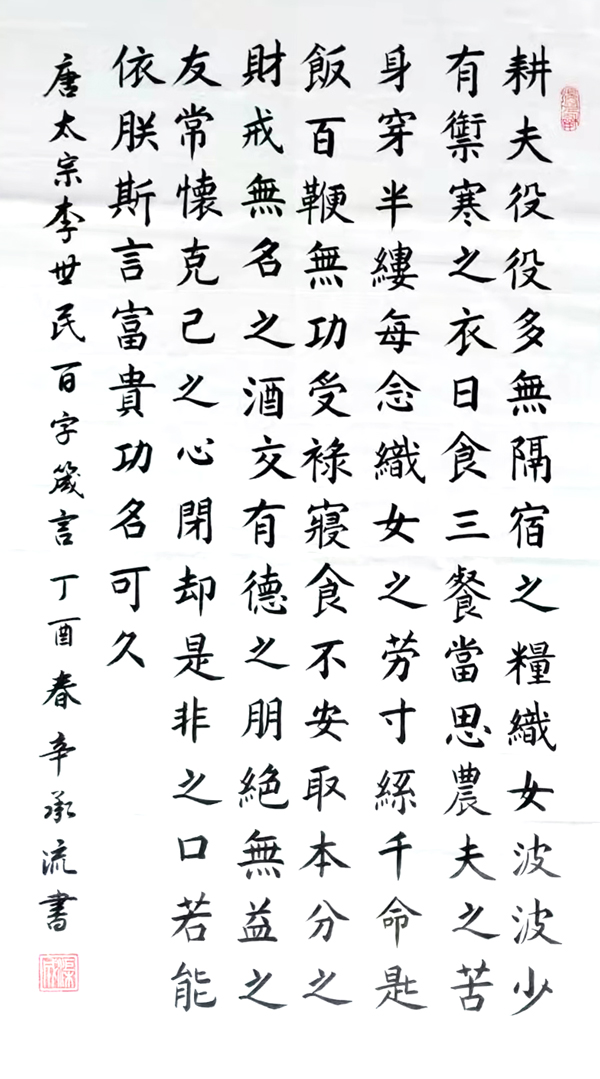 耕夫役役多無隔宿之糧織女波波少
有禦寒之衣日食三餐當思農夫之苦
身穿半縷每念織女之劳寸絲千命匙
飯百鞭無功受祿寢食不安取本分之
財戒無名之酒交有德之朋絕無益之
友常懷克己之心閉却是非之口若能
依朕斯言富貴功名可久
唐太宗李世民百字箴言丁酉春辛承流書